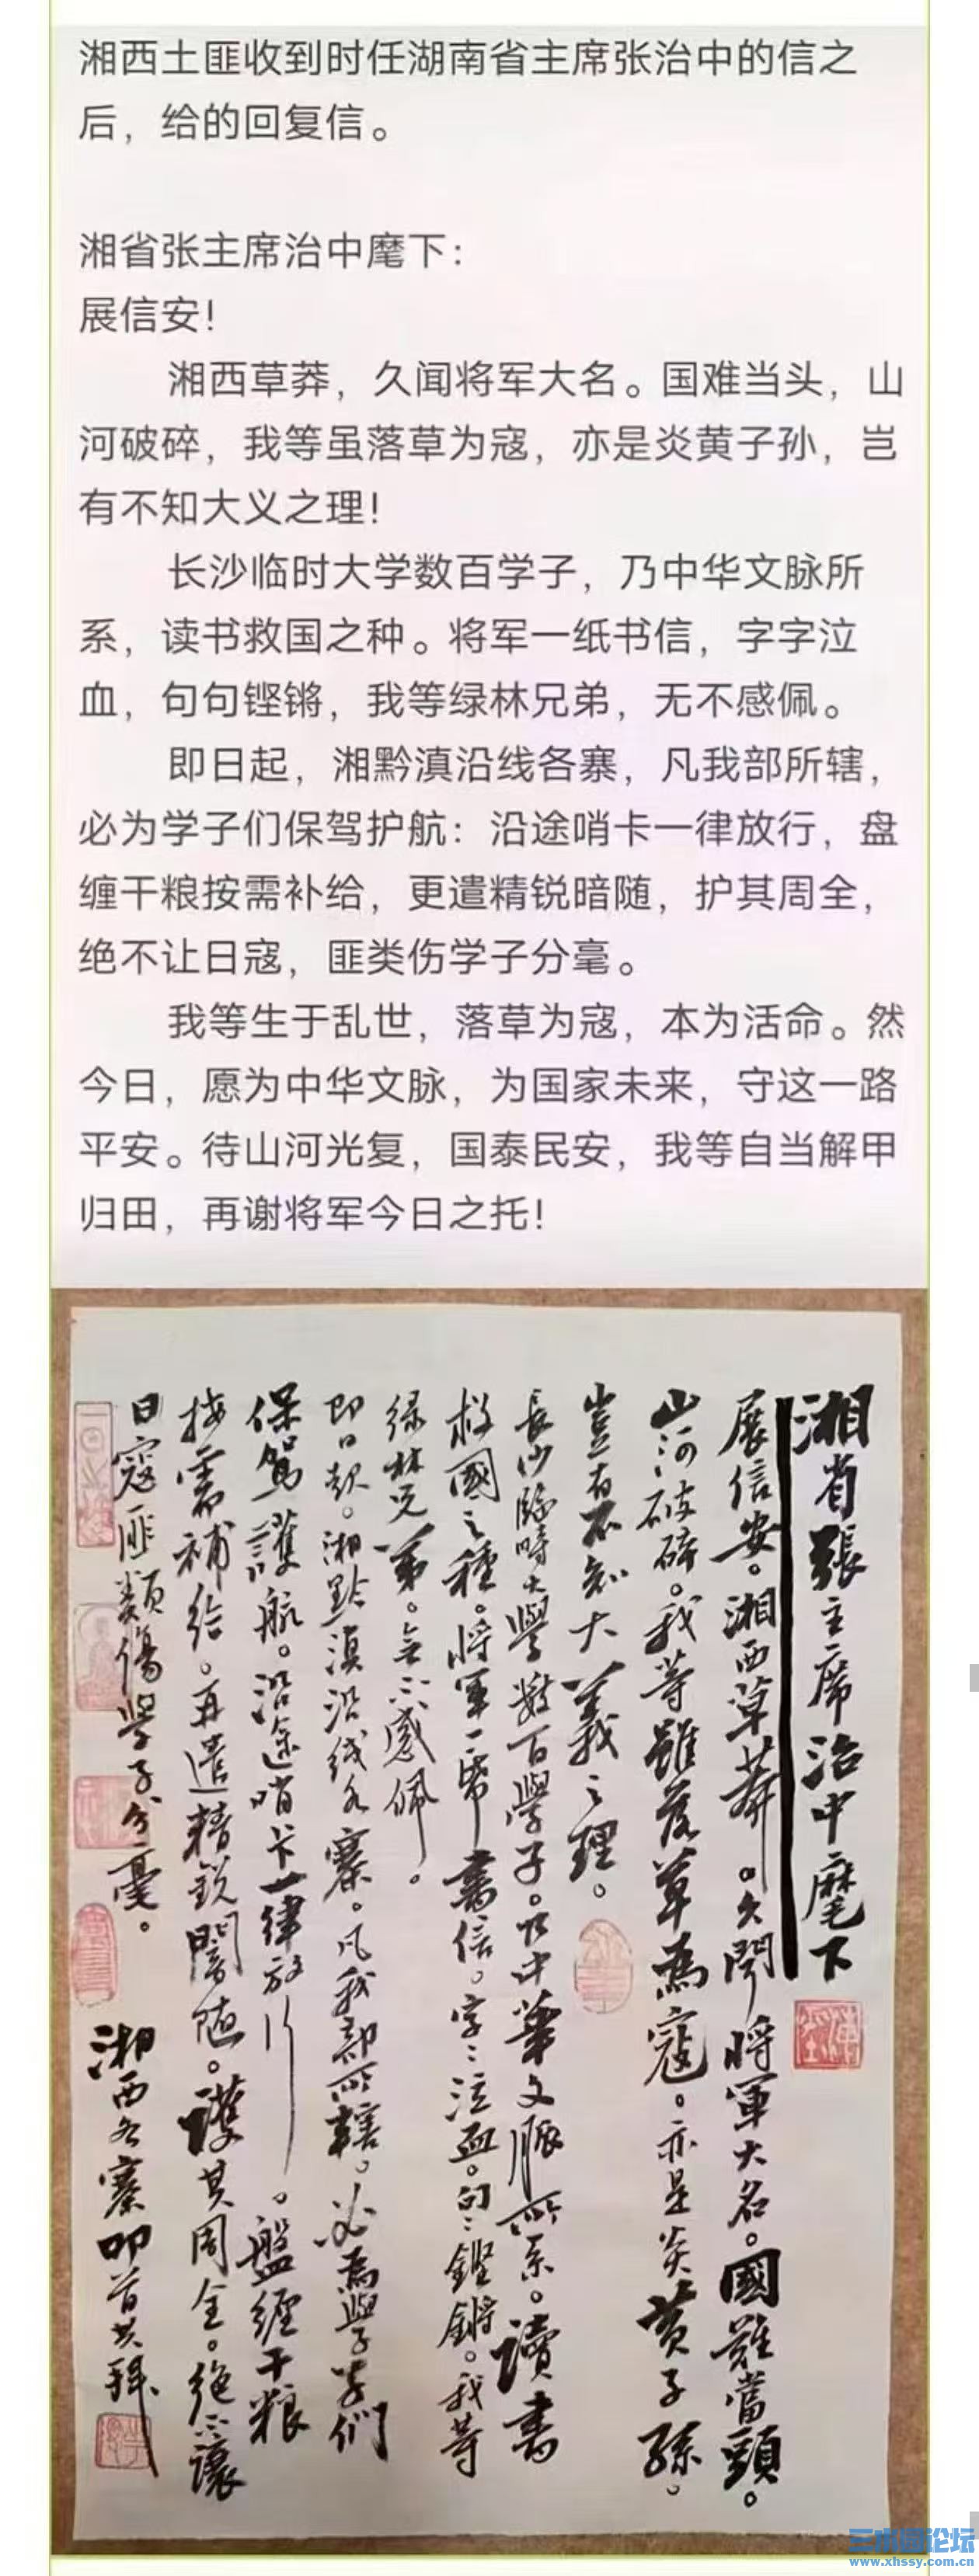 湘西土匪收到时任湖南省主席张治中的信之
后，给的回复信。
湘省张主席治中麾下：
展信安！
湘西草莽，久闻将军大名。国难当头，山
河破碎，我等虽落草为寇，亦是炎黄子孙，岂
有不知大义之理！
长沙临时大学数百学子，乃中华文脉所
系，读书救国之种。将军一纸书信，字字泣
血，句句铿锵，我等绿林兄弟，无不感佩。
即日起，湘黔滇沿线各寨，凡我部所辖，
必为学子们保驾护航：沿途哨卡一律放行，盘
缠干粮按需补给，更遣精锐暗随，护其周全，
绝不让日寇，匪类伤学子分毫。
我等生于乱世，落草为寇，本为活命。然
今日，愿为中华文脉，为国家未来，守这一路
平安。待山河光复，国泰民安，我等自当解甲
归田，再谢将军今日之托！
湘省張主席治中麾下
展信安。湘西草莽。久闻将軍大名。國難當頭。
山河破碎。我等雖落草為寇。亦是炎黄子孫。
豈有不知大義之理。
長沙臨時大學数百學子。乃中華文脈所系。讀書
救國之種。将軍一紙書信。字〻泣血。句〻鏗鏘。我等
绿林兄弟。無不感佩。
即日起。湘黔滇沿线各寨。凡我部所轄。必為學子们
保駕護航。沿途哨卡一律放行。盤缠干粮
按需補给。再遣精鋭闇随。護其周全。绝不讓
日寇匪類傷學子分毫。
湘西各寨叩首共拜
三水园论坛
www.xhssy.com.cn